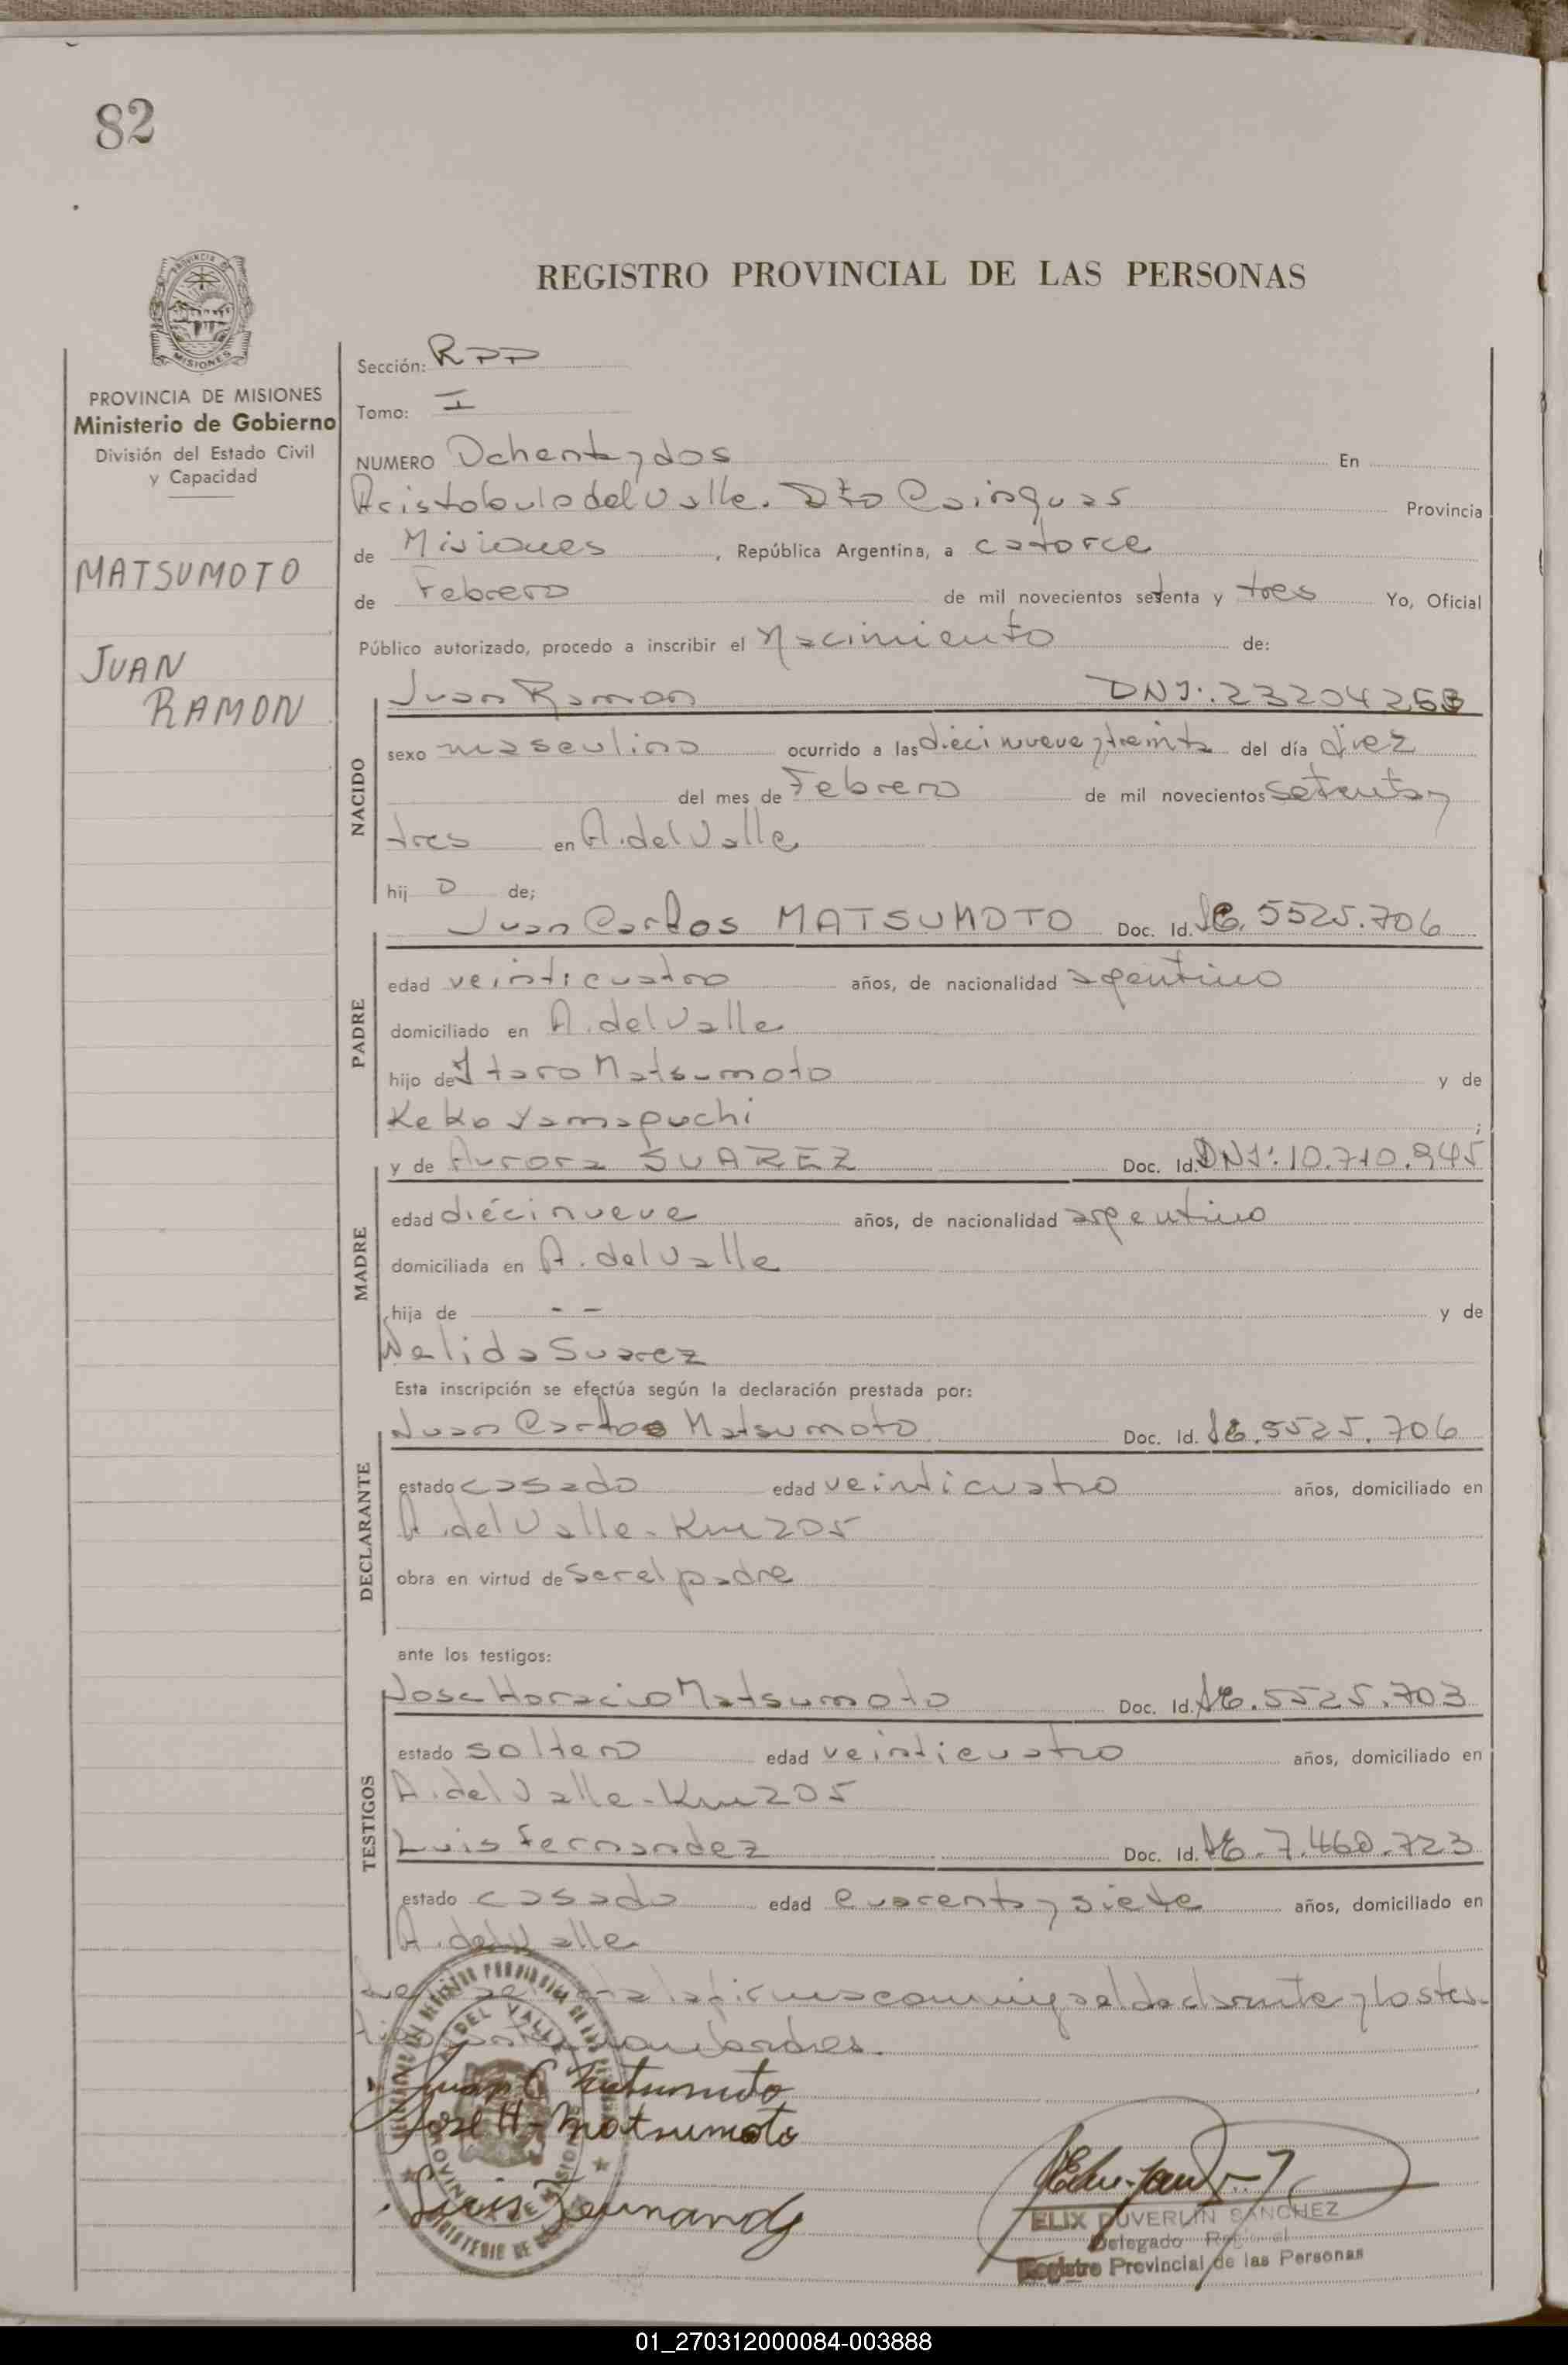 82
REGISTRO PROVINCIAL DE LAS PERSONAS
PROVINCIA DE
MISIONES
PROVINCIA DE MISIONES
Ministerio de Gobierno
División del Estado Civil
y Capacidad
MATSUMOTO
JUAN
RAMON
Sección: RPP
Tomo: I
NUMERO Ochenta y dos En
Aristobulo del Valle. Dto Cainguas Provincia
de Misiones, República Argentina, a catorce
de Febrero de mil novecientos setenta y tres Yo, Oficial
Público autorizado, procedo a inscribir el Nacimiento de:
NACIDO
Juan Ramon DNI: 23204263
sexo masculino ocurrido a las diecinueve y treinta del día diez
del mes de Febrero de mil novecientos setenta y
tres en A. del Valle
hij o de;
PADRE
Juan Carlos MATSUMOTO Doc. Id. LE. 5525.706
edad veinticuatro años, de nacionalidad agentino
domiciliado en A. del Valle
hijo de Itaro Matsumoto y de
Keko Yamaguchi ;
MADRE
y de Aurora SUAREZ Doc. Id. DNI: 10.710.945
edad diécinueve años, de nacionalidad argentino
domiciliada en A. del Valle
hija de -- y de
Nelida Suarez
Esta inscripción se efectúa según la declaración prestada por:
DECLARANTE
Juan Carlos Matsumoto Doc. Id. LE. 5525.706
estado casado edad veinticuatro años, domiciliado en
A. del Valle - Km 205
obra en virtud de ser el padre
ante los testigos:
TESTIGOS
Jose Horacio Matsumoto Doc. Id. LE. 5525.703
estado soltero edad veinticuatro años, domiciliado en
A. del Valle - Km 205
Luis Fernandez Doc. Id. LE. 7.460.723
estado casado edad cuarenta y siete años, domiciliado en
A. del Valle
la firma conmigo el declarante y los tes-
tigos nombrados.
Juan C Matsumoto
Jose H - Matsumoto
Luis Fernandez
ELIX DUVERLIN SANCHEZ
Delegado
Registro Provincial de las Personas
01_270312000084-003888